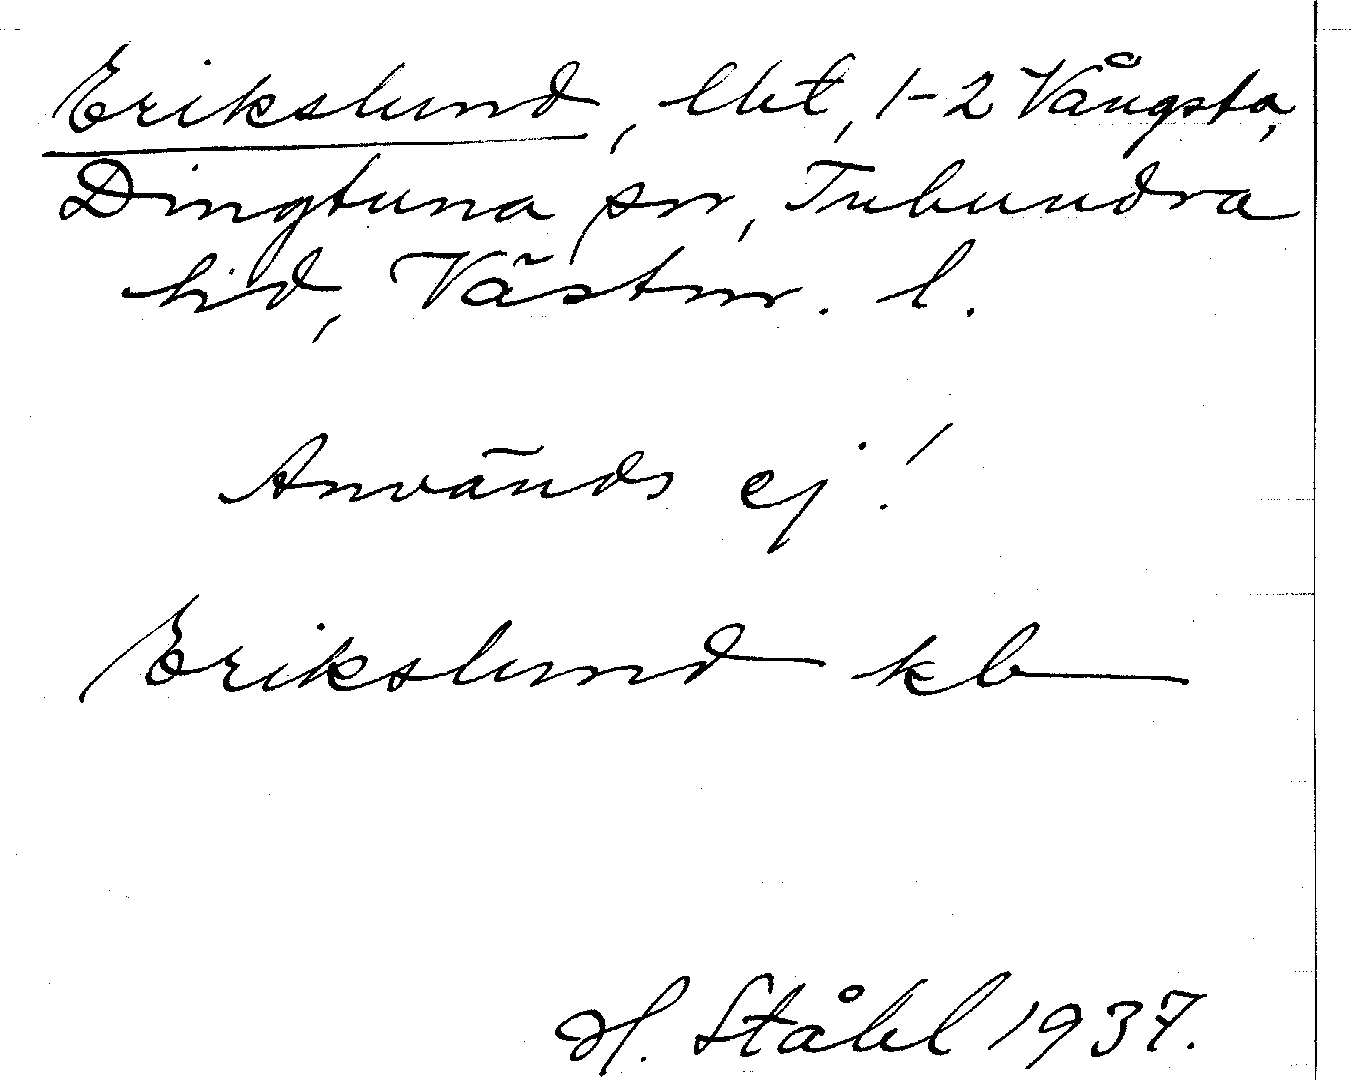 Erikslund, lht, 1-2 Vångsta,
Dingtuna sn, Tuhundra
hd, Västm. l.
Används ej!
Erikslund kb
H. Ståhl 1937.